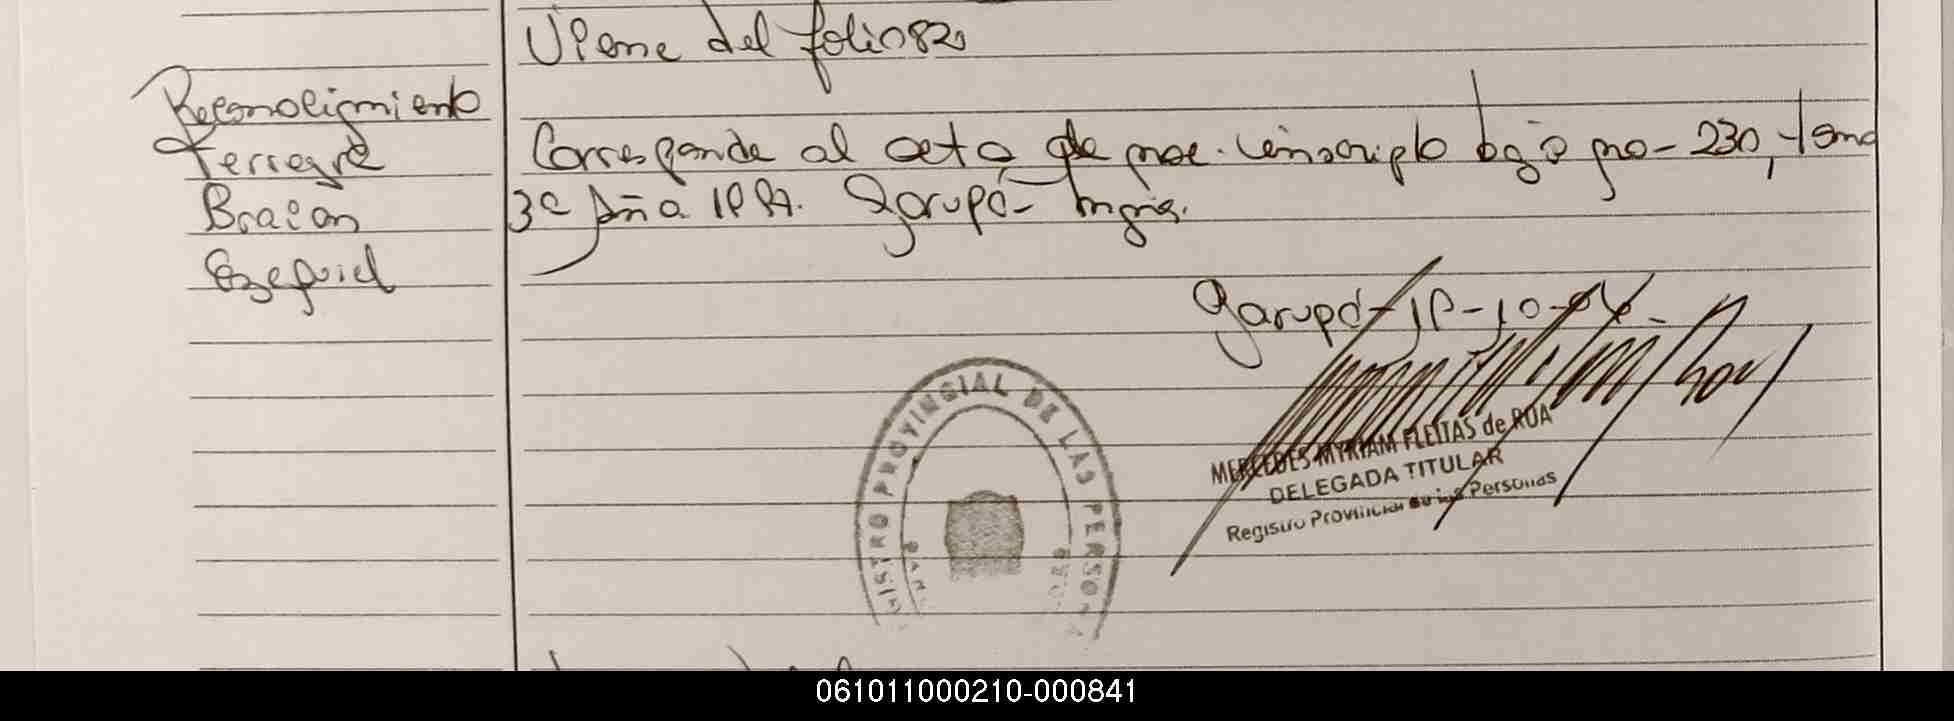 Viene del folio 82
Reconocimiento
Terragre
Braian
Ezequiel
Corresponde al acta de nac. inscripto bajo nro- 230, tomo
3º Año 199 Garupá- Mnes.
Garupá-
REGISTRO PROVINCIAL DE LAS PERSONA
MERCEDES MYRIAM FLEITAS de ROA
DELEGADA TITULAR
Registro Provincial de las Personas
061011000210-000841